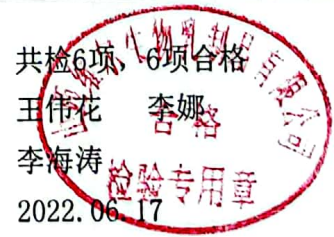 共检6项、6项合格
王伟花 李娜
李海涛
2022.06.17
生物乳制品有限公司
合格
检验专用章